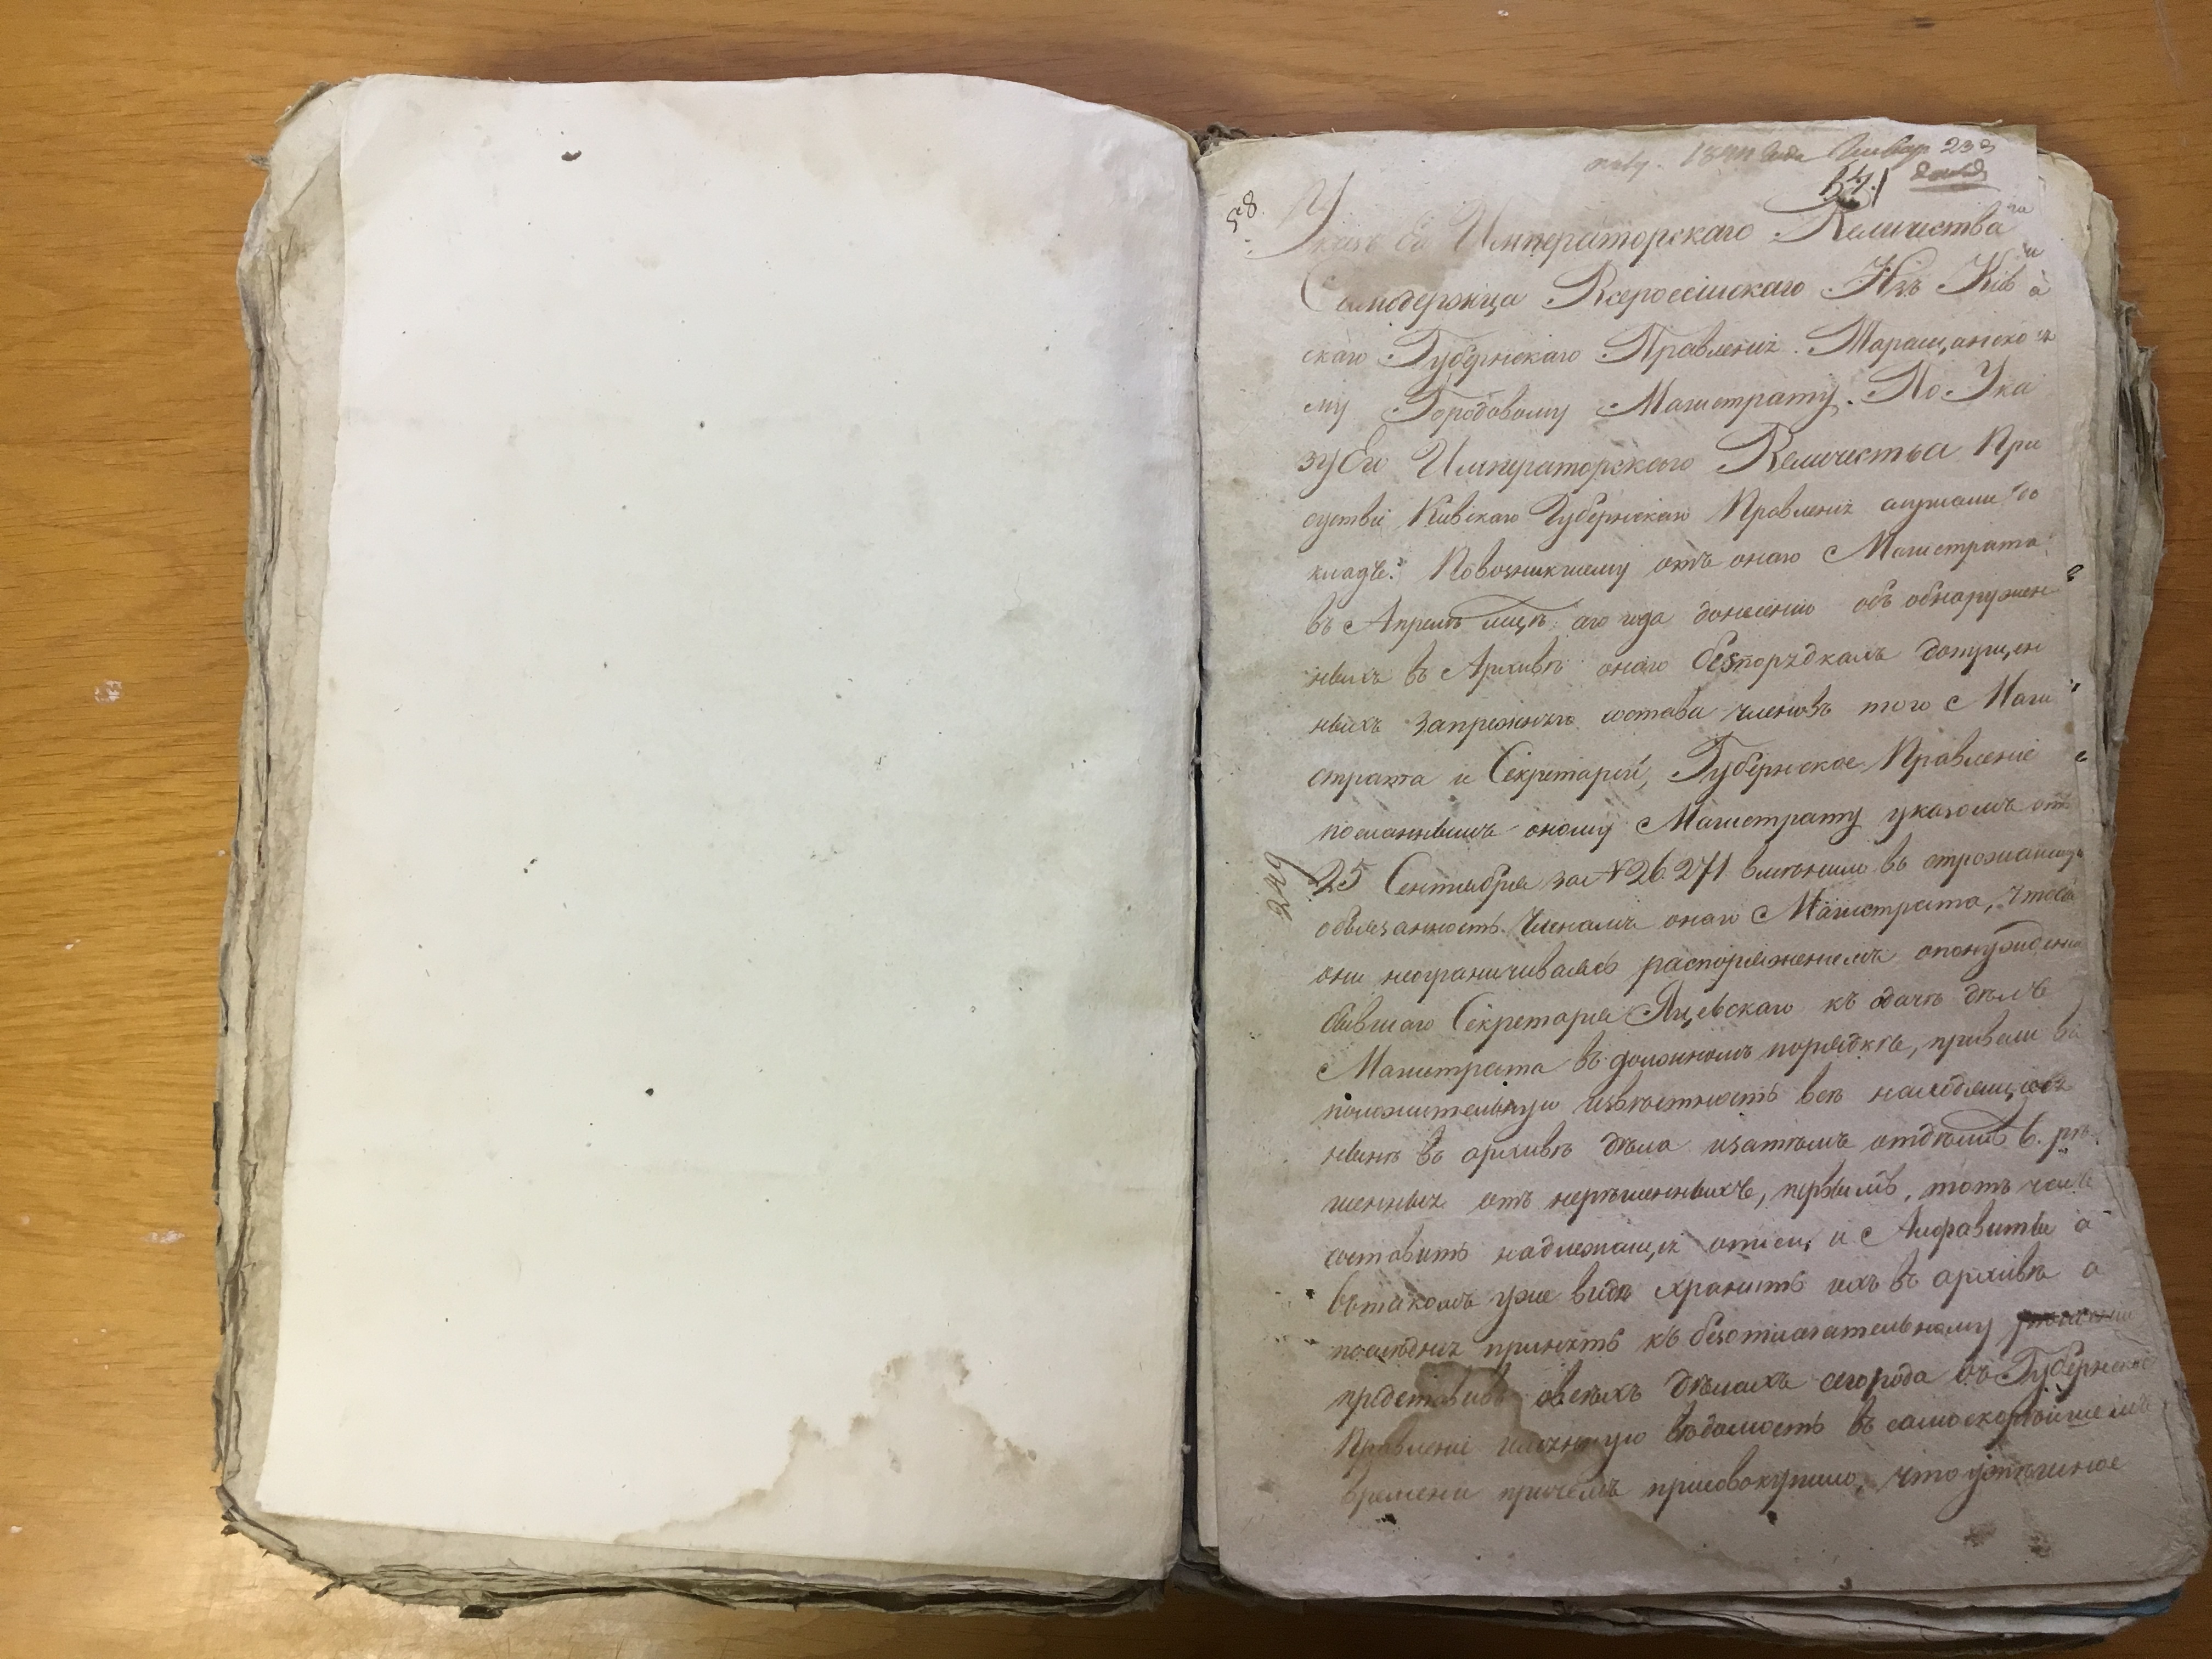 полу. 1841 года Января 23 д
58. 541
Указъ Его Императорскаго Величества
Самодержца Всероссійскаго Изъ Кіев
скаго Губернскаго Правленія. Таращанско
му Городовому Магистрату. По Ука
зу Его Императорскаго Величества При
сутствіе Кіевскаго Губернскаго Правленія слушали до
кладъ: По возникшему отъ онаго Магистрата
въ Апрелѣ мцѣ. сего года донесенію объ обнаружен
ныхъ въ Архивѣ онаго безпорядкахъ допущен
ныхъ запрежняго состава членовъ того Маги
страта и Секретарей, Губернское Правленіе
посланнымъ оному Магистрату указомъ отъ
249
25 Сентября за № 26271 вмѣнило въ строжайшую
обязанность Членамъ онаго Магистрата, чтобъ
они неограничиваясь распоряженіемъ опонужденіи
бывшаго Секретаря Яцевскаго къ сдачѣ дѣлъ
Магистрата въ должномъ порядкѣ, привели въ
положительную извѣстность всѣ находящіеся
нынѣ въ архивѣ дѣла изатѣмъ отдѣливъ рѣ
шенныя отъ нерѣшенныхъ, первымъ, тотъ часъ
составить надлежащія описи и Алфавиты а
вътакомъ уже видѣ хранить ихъ въ архивѣ а
послѣднія принять къ безотлагательному
представивъ овсѣхъ дѣлахъ сегорода въ Губернское
Правленіе именную вѣдомость въ самоскорѣйшемъ
времени причемъ присовокупило, что